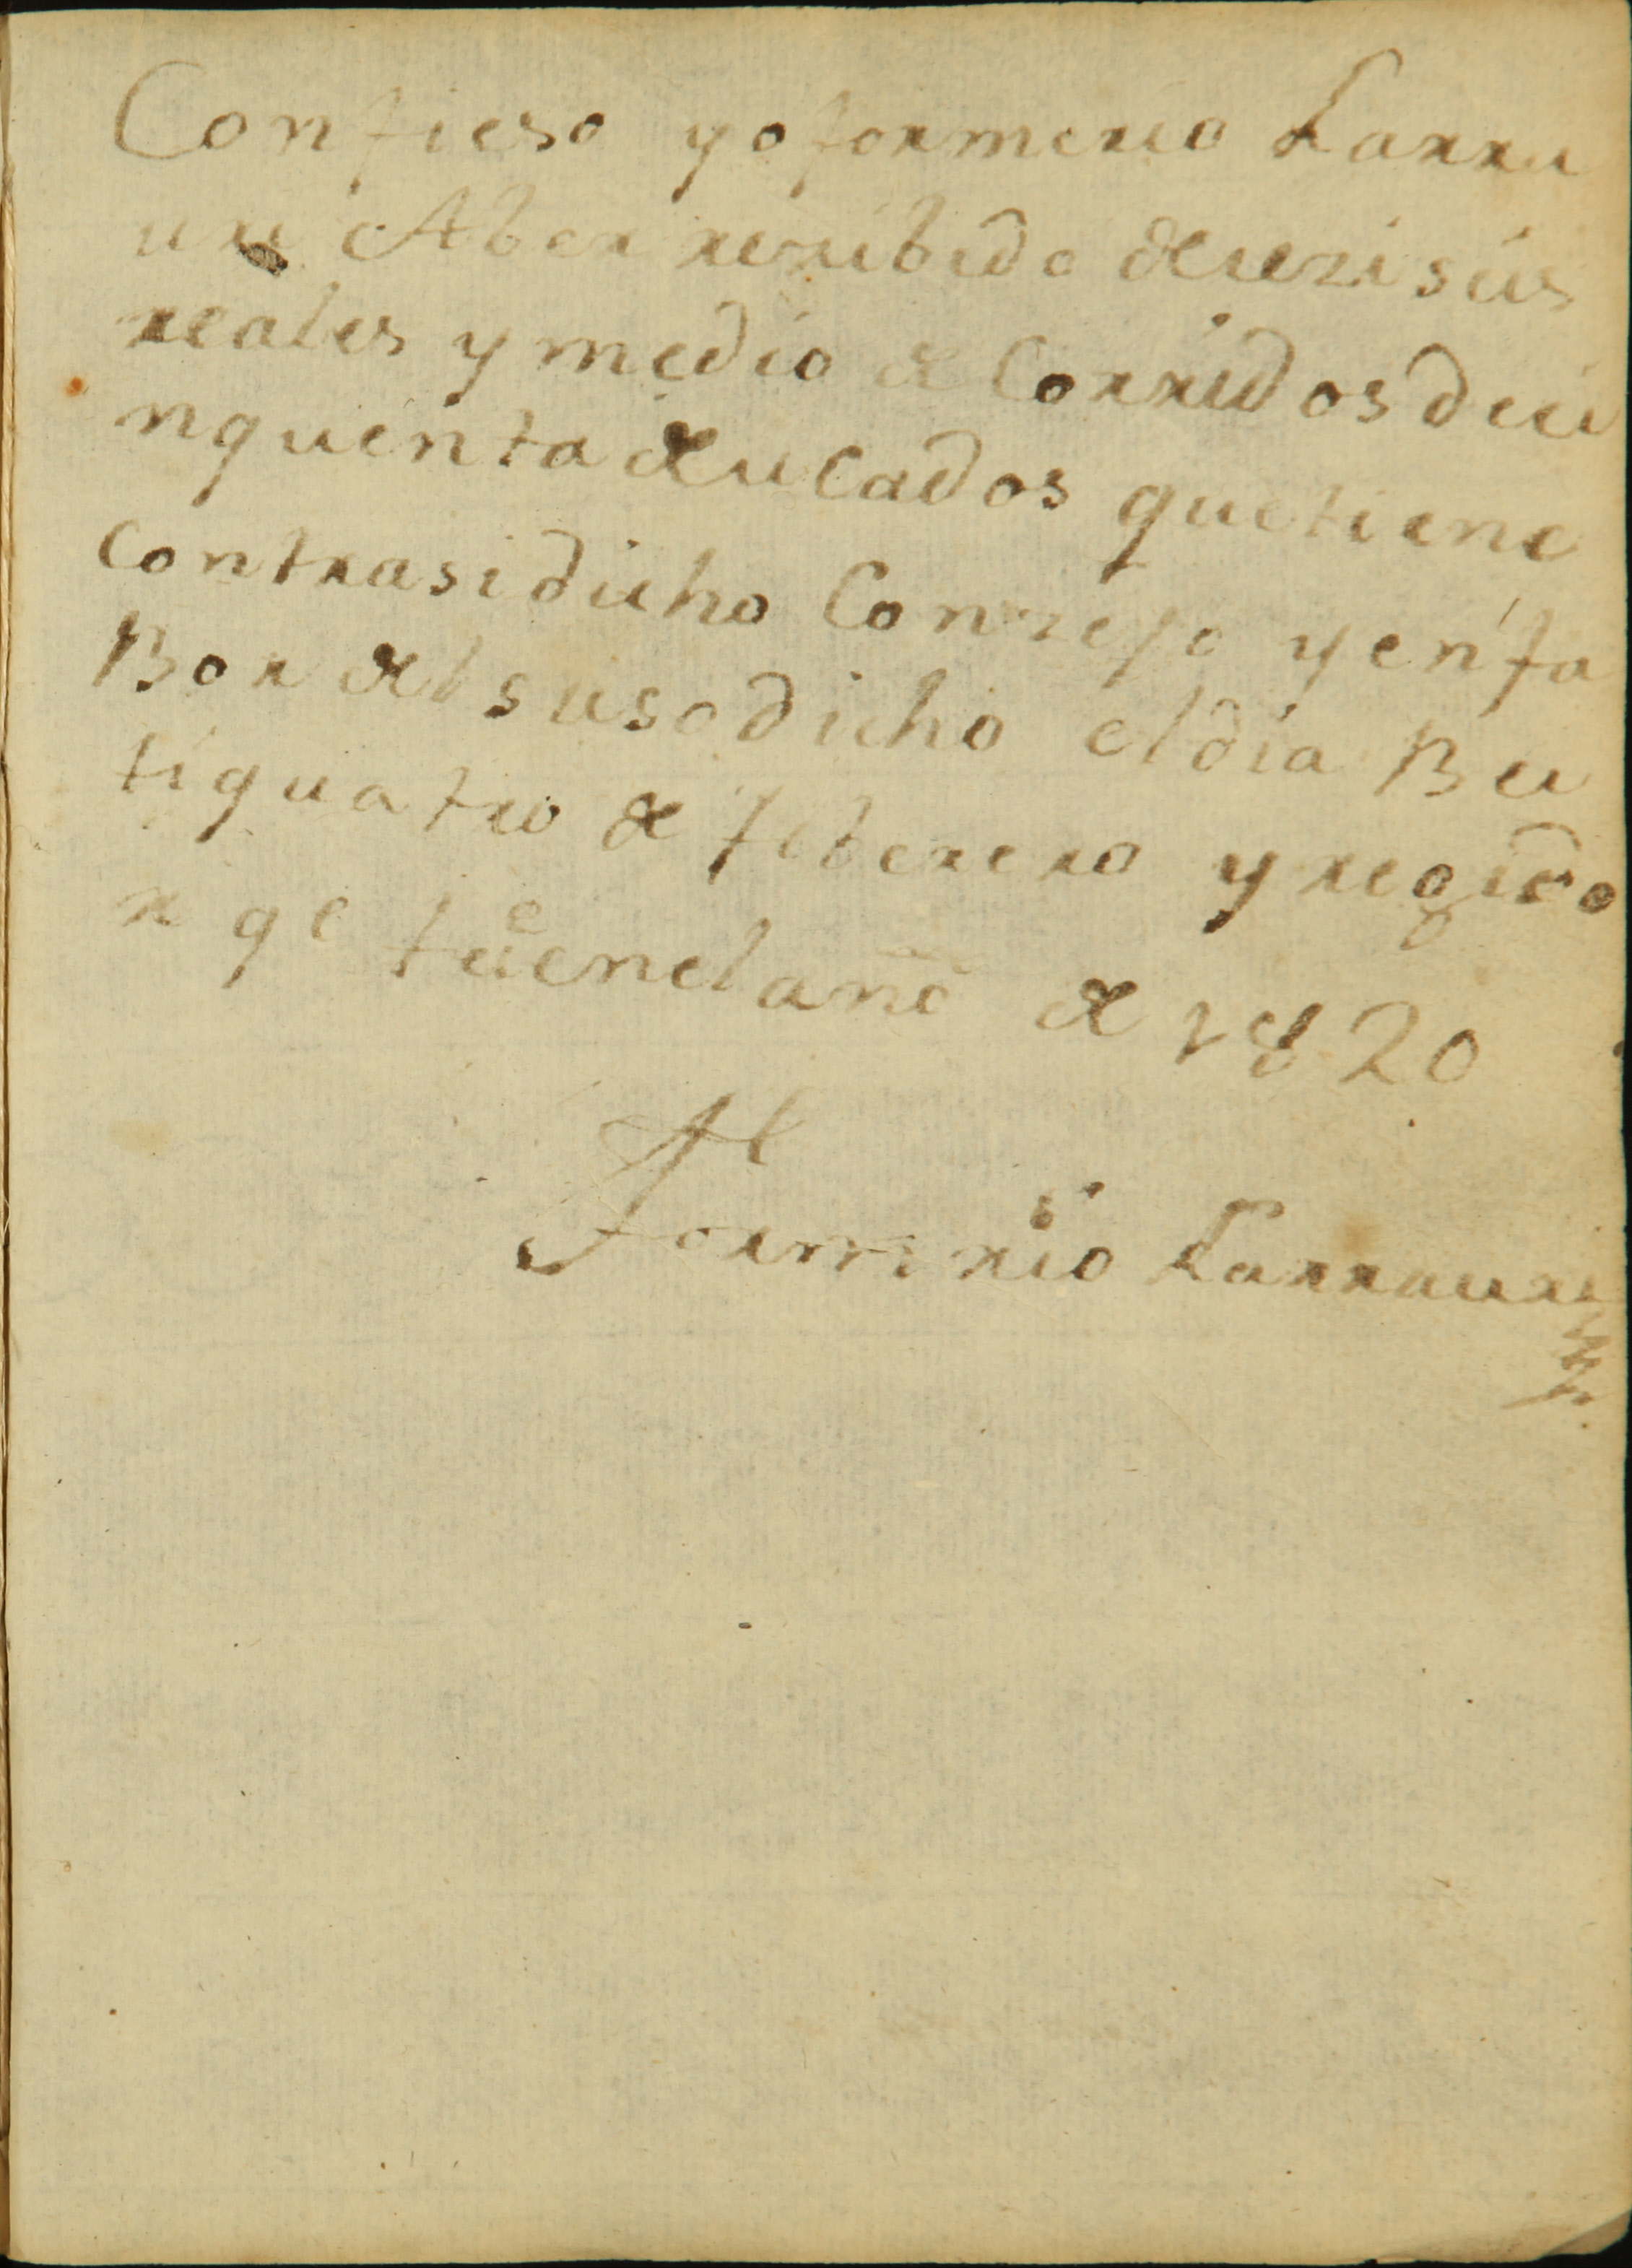 Confieso yo formerio Larra
uri Aber rezibido deiezi seis
reales y medio de Corridos de ci
nquenta ducados que tiene
Contra si dicho Conzejo y en fa
Bor del susodicho el dia Bei
tiquatro de feberero y regido
r qe fue en el año de 1820
formerio Larrauri